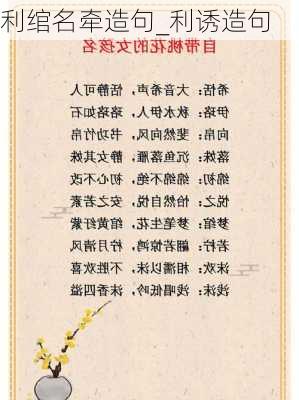 利绾名牵造句_利诱造句
自带桃花的女孩名
希恬：大音希声，恬静可人
伊珞：秋水伊人，珞珞如石
向帛：斐然向风，书功竹帛
落姝：沉鱼落雁，静女其姝
绵初：绵绵不绝，初心不改
悦之：怡然自悦，安之若素
梦绾：梦笔生花，绾黄纡紫
若柠：翩若惊鸿，柠月清风
沫欢：相濡以沫，不胜欢喜
浅沫：浅唱低吟，沫香四溢